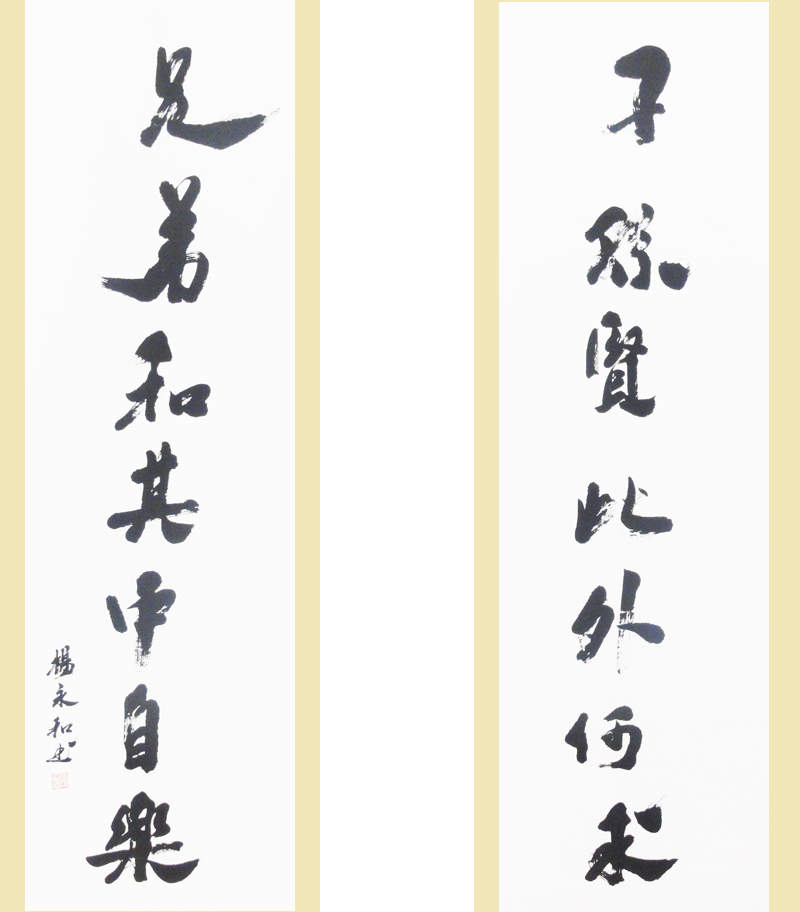 子孫賢此外何求
兄弟和其中自樂
楊永和書